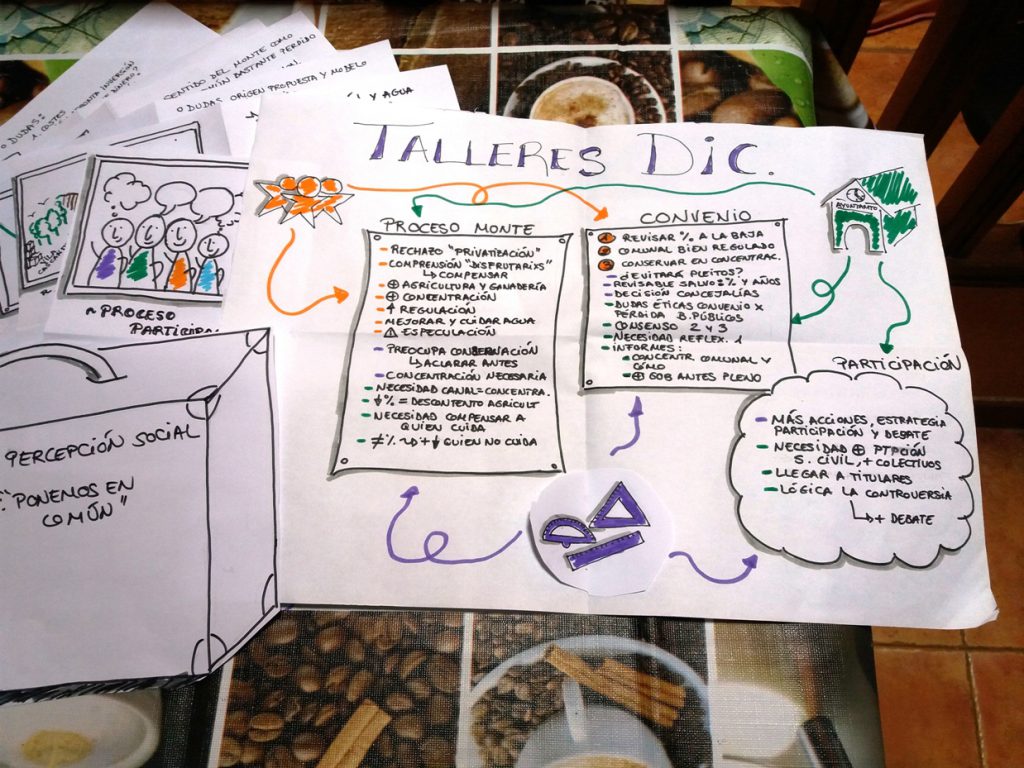 O DUDAS:
SENTIDO DEL MONTE COMO
BASTANTE PERDIDO
O DUDAS ORIGEN PROPUESTA Y MODELO
Y AGUA
TALLERES DIC.
AYUNTAMIENTO
~PROCESO
PARTICIPA
PERCEPCIÓN SOCIAL
"PONEMOS EN
COMÚN"
PROCESO MONTE
- RECHAZO "PRIVATIZACIÓN"
- COMPRENSIÓN "DISFRUTARIXS"
↳ COMPENSAR
- ⊕ AGRICULTURA Y GANADERÍA
- ⊕ CONCENTRACIÓN
- ↑ REGULACIÓN
- MEJORAR Y CUIDAR AGUA
- ⚠ ESPECULACIÓN
- PREOCUPA CONSERVACIÓN
↳ ACLARAR ANTES
- CONCENTRACIÓN NECESARIA
- NECESIDAD CANAL = CONCENTRA.
- ↓% = DESCONTENTO AGRICULT
- NECESIDAD COMPENSAR A
QUIEN CUIDA
- ≠% ~> + ↓ QUIEN NO CUIDA
CONVENIO
1 REVISAR % A LA BAJA
2 COMUNAL BIEN REGULADO
3 CONSERVAR EN CONCENTRAC.
- ¿EVITARÁ PLEITOS?
- REVISABLE SALVO 2% Y AÑOS
- DECISIÓN CONCEJALÍAS
- DUDAS ÉTICAS CONVENIO X
PÉRDIDA B. PÚBLICOS
- CONSENSO 2 Y 3
- NECESIDAD REFLEX. 1
- INFORMES:
CONCENTR COMUNAL Y
- ⊕ GOB ANTES PLENO
PARTICIPACIÓN
- MÁS ACCIONES, ESTRATEGIA
PARTICIPACIÓN Y DEBATE
- NECESIDAD ⊕ PTPCIÓN
S. CIVIL, + COLECTIVOS
- LLEGAR A TITULARES
- LÓGICA LA CONTROVERSIA
↳ + DEBATE